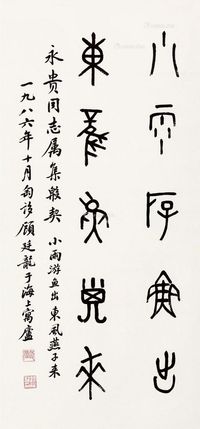 小雨游魚出
東風燕子來
永贵同志属集殷契 小雨游鱼出東风燕子来
一九八六年十月匋誃顧廷龍于海上寓廬